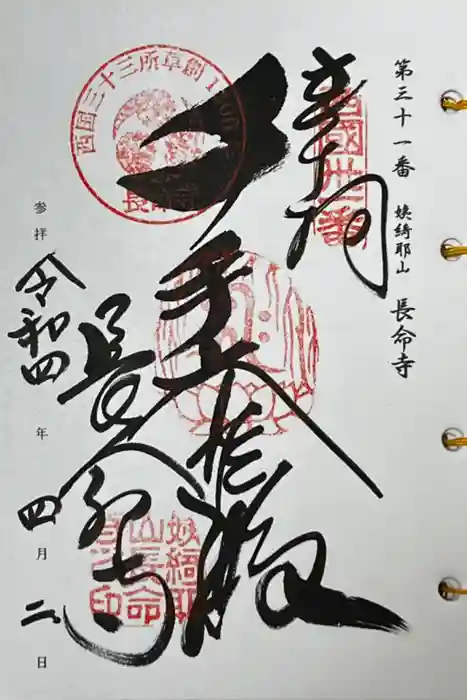 第三十一番 姨綺耶山 長命寺
奉拝
西國卅一番
西国三十三所草創1300年
長命寺
千手大悲殿
長命寺
姨綺耶山長命寺之印
参拝 令和四年四月二日